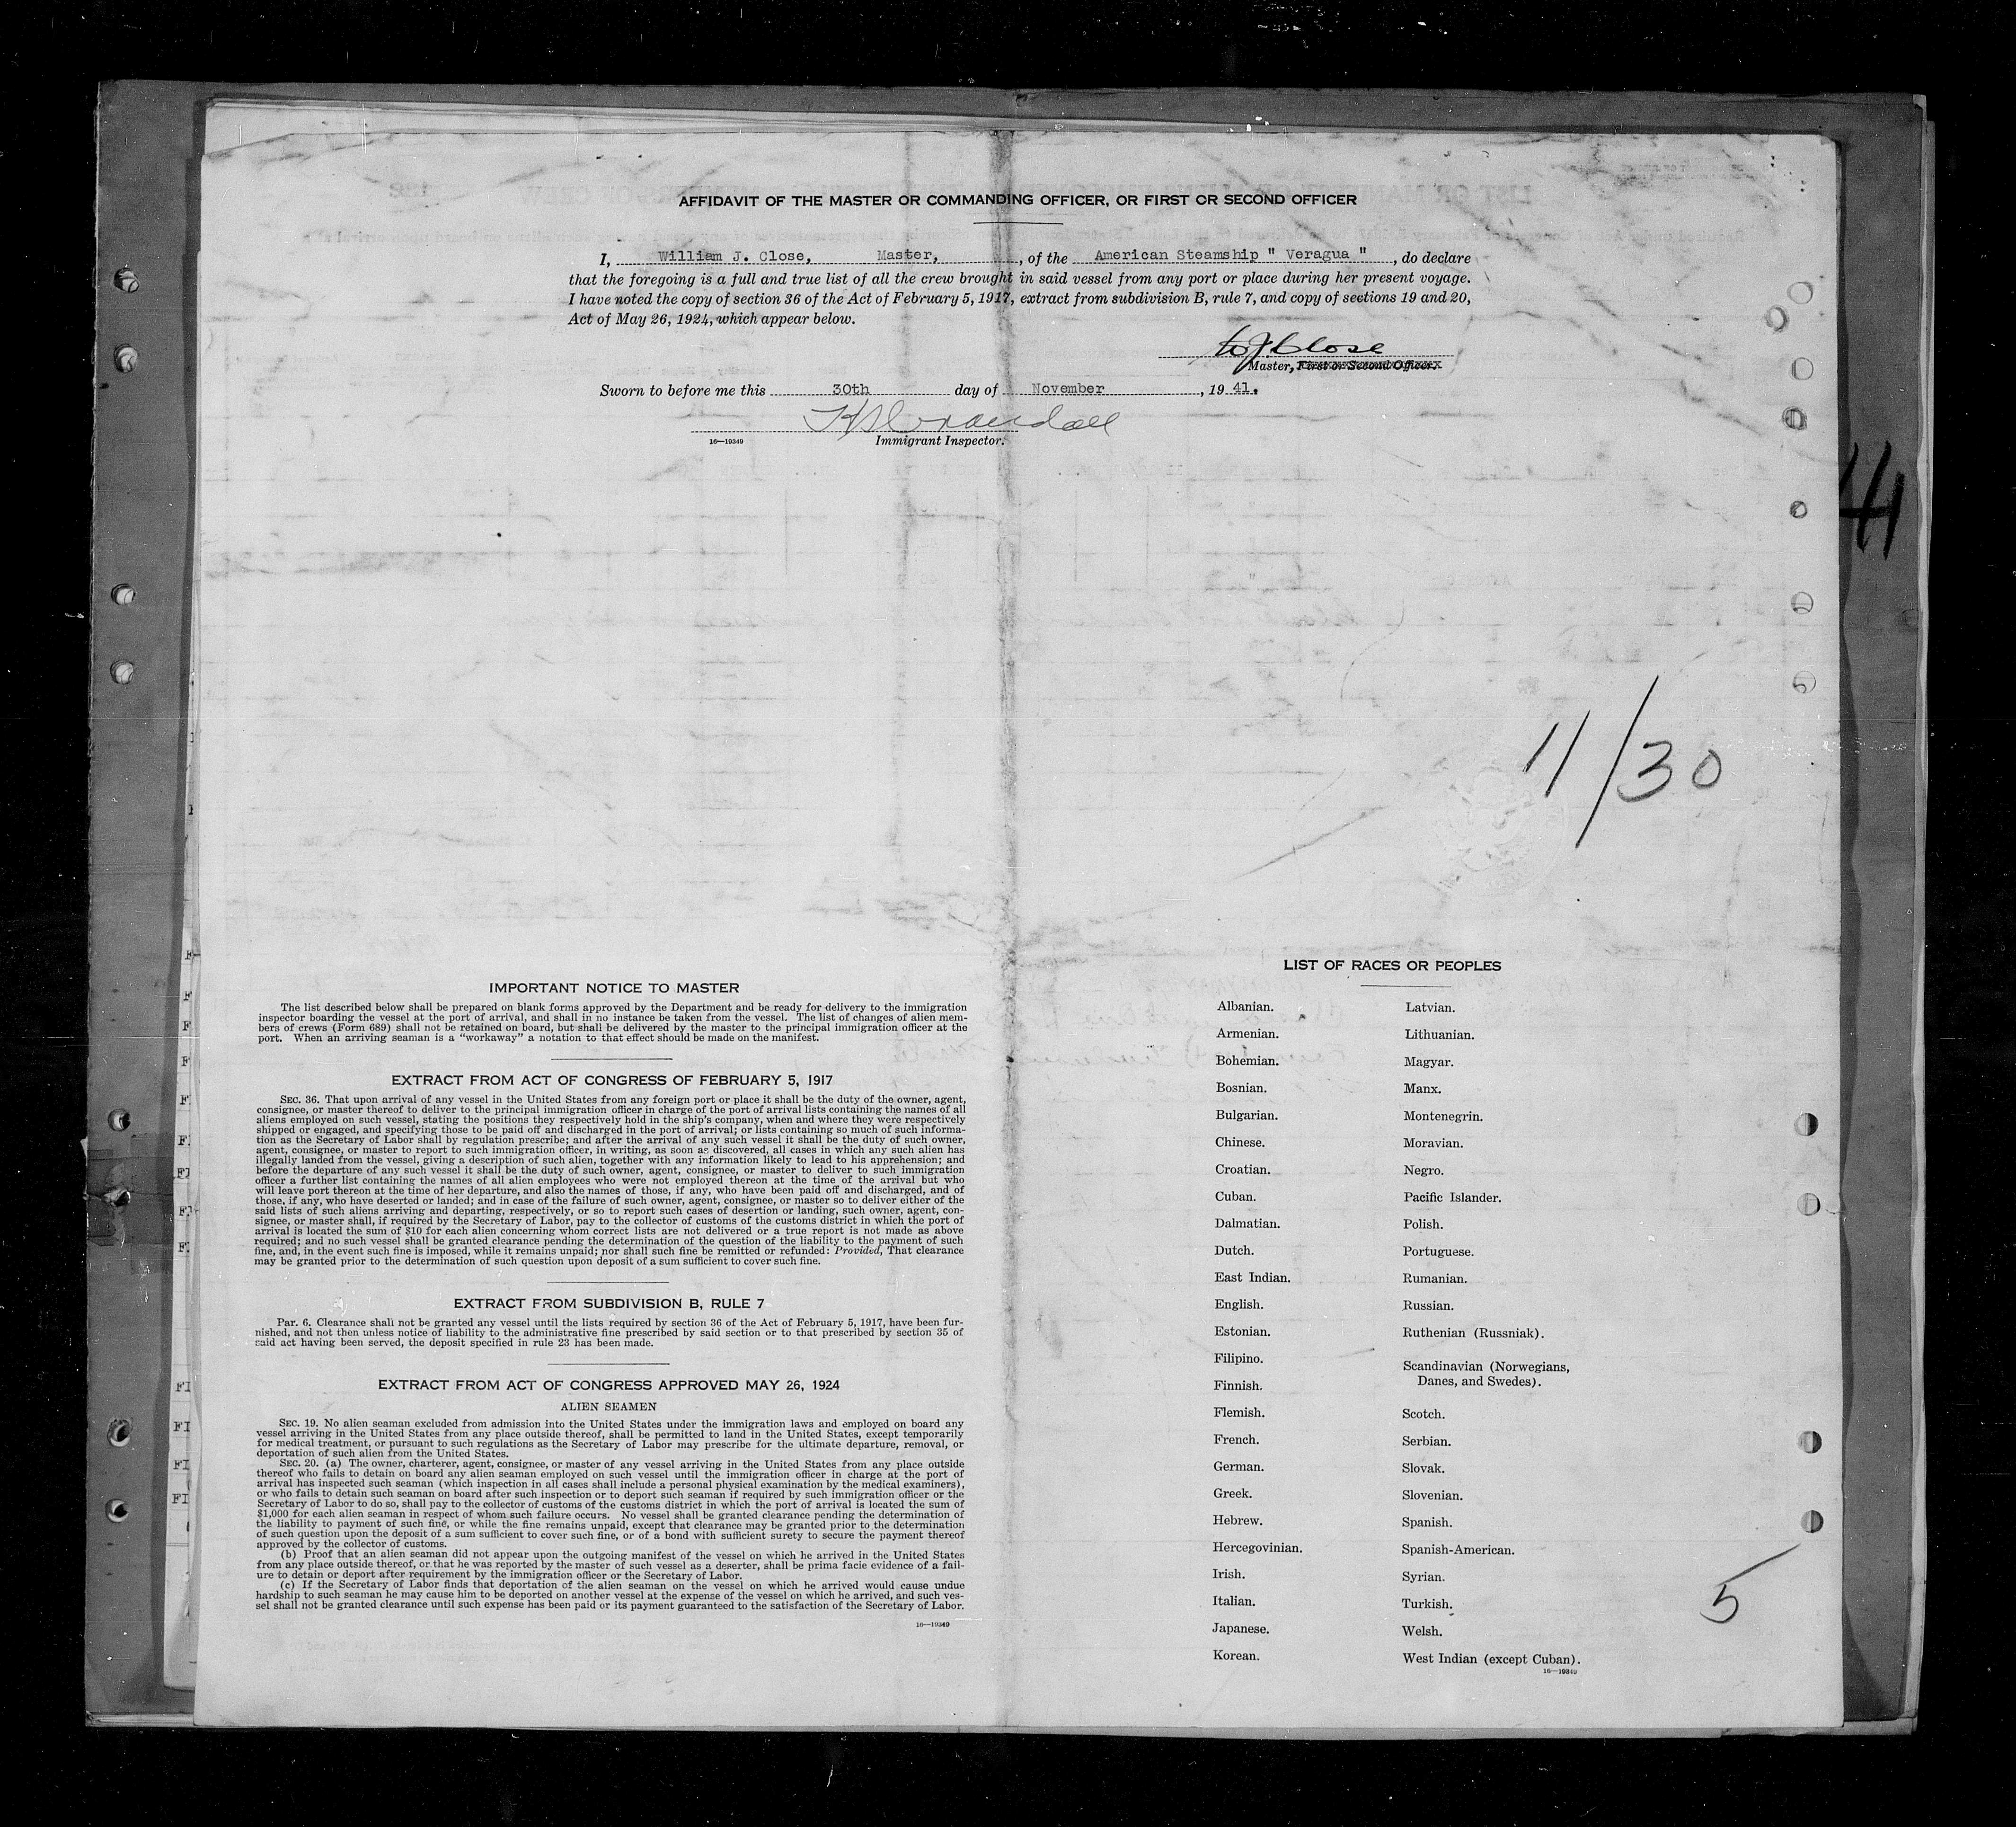 AFFIDAVIT OF THE MASTER OR COMMANDING OFFICER, OR FIRST OR SECOND OFFICER
I, William J. Close, Master, , of the American Steamship " Veragua " , do declare
that the foregoing is a full and true list of all the crew brought in said vessel from any port or place during her present voyage.
I have noted the copy of section 36 of the Act of February 5, 1917, extract from subdivision B, rule 7, and copy of sections 19 and 20,
Act of May 26, 1924, which appear below.
W J. Close
Master, First or Second Officer.
Sworn to before me this 30th day of November , 19 41.
Crandall
16—19349 Immigrant Inspector.
44
11/30
IMPORTANT NOTICE TO MASTER
The list described below shall be prepared on blank forms approved by the Department and be ready for delivery to the immigration
inspector boarding the vessel at the port of arrival, and shall in no instance be taken from the vessel. The list of changes of alien mem-
bers of crews (Form 689) shall not be retained on board, but shall be delivered by the master to the principal immigration officer at the
port. When an arriving seaman is a "workaway" a notation to that effect should be made on the manifest.
EXTRACT FROM ACT OF CONGRESS OF FEBRUARY 5, 1917
SEC. 36. That upon arrival of any vessel in the United States from any foreign port or place it shall be the duty of the owner, agent,
consignee, or master thereof to deliver to the principal immigration officer in charge of the port of arrival lists containing the names of all
aliens employed on such vessel, stating the positions they respectively hold in the ship's company, when and where they were respectively
shipped or engaged, and specifying those to be paid off and discharged in the port of arrival; or lists containing so much of such informa-
tion as the Secretary of Labor shall by regulation prescribe; and after the arrival of any such vessel it shall be the duty of such owner,
agent, consignee, or master to report to such immigration officer, in writing, as soon as discovered, all cases in which any such alien has
illegally landed from the vessel, giving a description of such alien, together with any information likely to lead to his apprehension; and
before the departure of any such vessel it shall be the duty of such owner, agent, consignee, or master to deliver to such immigration
officer a further list containing the names of all alien employees who were not employed thereon at the time of the arrival but who
will leave port thereon at the time of her departure, and also the names of those, if any, who have been paid off and discharged, and of
those, if any, who have deserted or landed; and in case of the failure of such owner, agent, consignee, or master so to deliver either of the
said lists of such aliens arriving and departing, respectively, or so to report such cases of desertion or landing, such owner, agent, con-
signee, or master shall, if required by the Secretary of Labor, pay to the collector of customs of the customs district in which the port of
arrival is located the sum of $10 for each alien concerning whom correct lists are not delivered or a true report is not made as above
required; and no such vessel shall be granted clearance pending the determination of the question of the liability to the payment of such
fine, and, in the event such fine is imposed, while it remains unpaid; nor shall such fine be remitted or refunded: Provided, That clearance
may be granted prior to the determination of such question upon deposit of a sum sufficient to cover such fine.
EXTRACT FROM SUBDIVISION B, RULE 7
Par. 6. Clearance shall not be granted any vessel until the lists required by section 36 of the Act of February 5, 1917, have been fur-
nished, and not then unless notice of liability to the administrative fine prescribed by said section or to that prescribed by section 35 of
said act having been served, the deposit specified in rule 23 has been made.
EXTRACT FROM ACT OF CONGRESS APPROVED MAY 26, 1924
ALIEN SEAMEN
SEC. 19. No alien seaman excluded from admission into the United States under the immigration laws and employed on board any
vessel arriving in the United States from any place outside thereof, shall be permitted to land in the United States, except temporarily
for medical treatment, or pursuant to such regulations as the Secretary of Labor may prescribe for the ultimate departure, removal, or
deportation of such alien from the United States.
SEC. 20. (a) The owner, charterer, agent, consignee, or master of any vessel arriving in the United States from any place outside
thereof who fails to detain on board any alien seaman employed on such vessel until the immigration officer in charge at the port of
arrival has inspected such seaman (which inspection in all cases shall include a personal physical examination by the medical examiners),
or who fails to detain such seaman on board after such inspection or to deport such seaman if required by such immigration officer or the
Secretary of Labor to do so, shall pay to the collector of customs of the customs district in which the port of arrival is located the sum of
$1,000 for each alien seaman in respect of whom such failure occurs. No vessel shall be granted clearance pending the determination of
the liability to payment of such fine, or while the fine remains unpaid, except that clearance may be granted prior to the determination
of such question upon the deposit of a sum sufficient to cover such fine, or of a bond with sufficient surety to secure the payment thereof
approved by the collector of customs.
(b) Proof that an alien seaman did not appear upon the outgoing manifest of the vessel on which he arrived in the United States
from any place outside thereof, or that he was reported by the master of such vessel as a deserter, shall be prima facie evidence of a fail-
ure to detain or deport after requirement by the immigration officer or the Secretary of Labor.
(c) If the Secretary of Labor finds that deportation of the alien seaman on the vessel on which he arrived would cause undue
hardship to such seaman he may cause him to be deported on another vessel at the expense of the vessel on which he arrived, and such ves-
sel shall not be granted clearance until such expense has been paid or its payment guaranteed to the satisfaction of the Secretary of Labor.
16—19349
LIST OF RACES OR PEOPLES
Albanian.
Armenian.
Bohemian.
Bosnian.
Bulgarian.
Chinese.
Croatian.
Cuban.
Dalmatian.
Dutch.
East Indian.
English.
Estonian.
Filipino.
Finnish.
Flemish.
French.
German.
Greek.
Hebrew.
Hercegovinian.
Irish.
Italian.
Japanese.
Korean.
Latvian.
Lithuanian.
Magyar.
Manx.
Montenegrin.
Moravian.
Negro.
Pacific Islander.
Polish.
Portuguese.
Rumanian.
Russian.
Ruthenian (Russniak).
Scandinavian (Norwegians,
Danes, and Swedes).
Scotch.
Serbian.
Slovak.
Slovenian.
Spanish.
Spanish-American.
Syrian.
Turkish.
Welsh.
West Indian (except Cuban).
16—19349
5